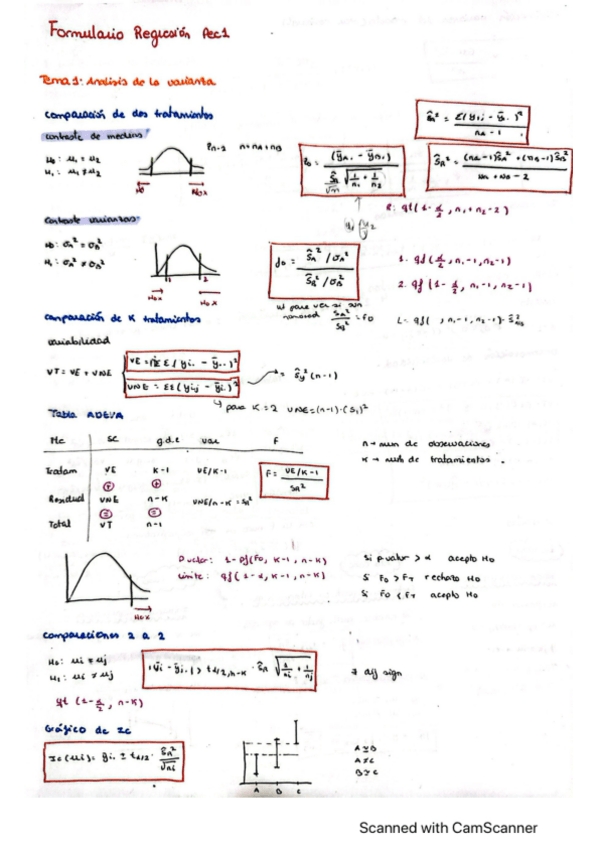 Formulario Regresión Pec1
Tema 1: Análisis de la varianza
comparación de dos tratamientos
contraste de medias:
H0: μ1 = μ2
H1: μ1 ≠ μ2
n = nA + nB
ŜR² = (nA-1)ŜA² + (nB-1)ŜB² / nA + nB - 2
2: qt(1-α/2, n1+n2-2)
contraste varianzas:
H0: σA² = σB²
H1: σA² ≠ σB²
f0 = ŜA²/σA² / ŜB²/σB²
1. qf(α/2, n1-1, n2-1)
2. qf(1-α/2, n1-1, n2-1)
comparación de K tratamientos
variabilidad
VT = VE + VNE
VNE = ΣΣ(yij - ȳi.)²
= Ŝy²(n-1)
↳ para K=2 VNE=(n-1)·(S1)²
Tabla ADEVA
SC g.d.l var F
Tratam VE K-1 VE/K-1
F = VE/K-1 / SR²
Residual VNE n-K VNE/n-K = SR²
Total VT n-1
n → num de observaciones
K → num de tratamientos.
Pvalor: 1-pf(F0, K-1, n-K)
Límite: qf(1-α, K-1, n-K)
Si pvalor > α acepto H0
Si F0 > FT rechazo H0
Si F0 < FT acepto H0
H0 x
comparaciones 2 a 2
H0: μi = μj
H1: μi ≠ μj
|ȳi - ȳj.| > tα/2,n-K · ŜR √1/ni + 1/nj
qt(1-α/2, n-K)
Gráfico de IC
IC(μi) = ȳi. ± tα/2 · ŜR²/√ni
A B C
Scanned with CamScanner